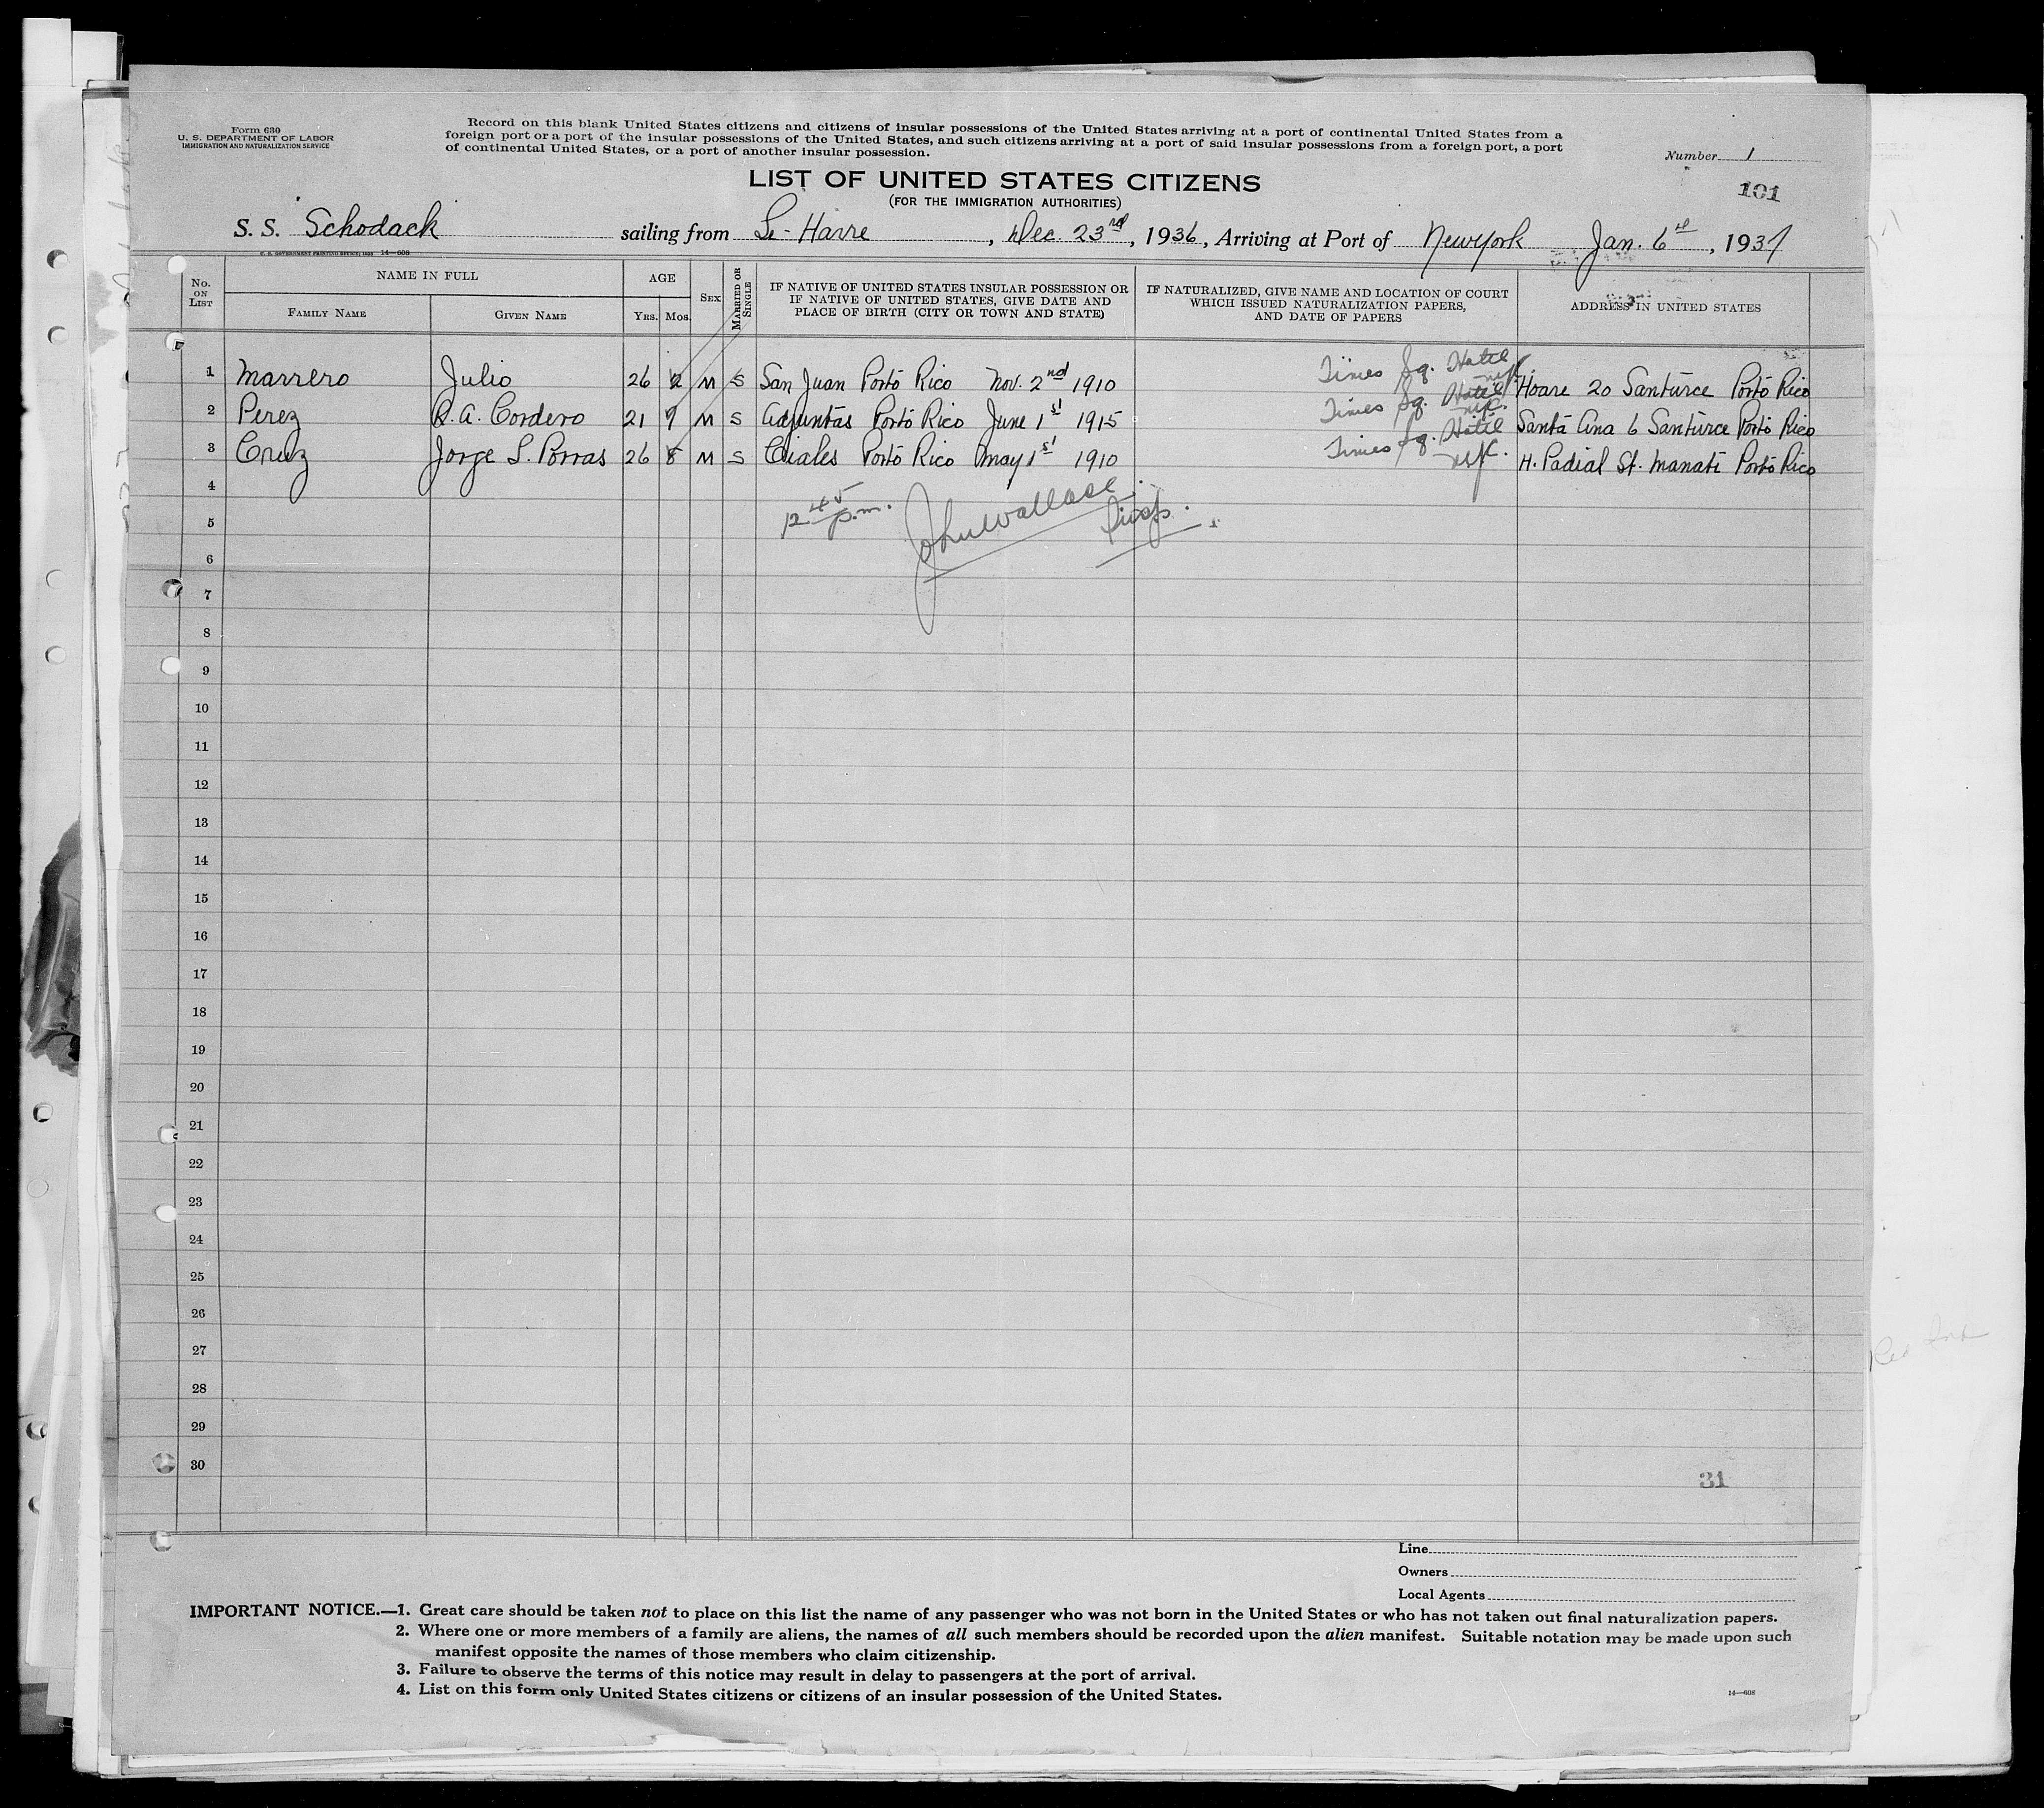 Form 630
U. S. DEPARTMENT OF LABOR
IMMIGRATION AND NATURALIZATION SERVICE
Record on this blank United States citizens and citizens of insular possessions of the United States arriving at a port of continental United States from a
foreign port or a port of the insular possessions of the United States, and such citizens arriving at a port of said insular possessions from a foreign port, a port
of continental United States, or a port of another insular possession.
Number 1
LIST OF UNITED STATES CITIZENS
101
(FOR THE IMMIGRATION AUTHORITIES)
S. S. Schodack sailing from Le-Havre, Dec. 23rd, 1936, Arriving at Port of New York Jan. 6th, 1937
U. S. GOVERNMENT PRINTING OFFICE: 14—608
No. ON LIST
NAME IN FULL
FAMILY NAME
GIVEN NAME
AGE
YRS.
MOS.
SEX
MARRIED OR SINGLE
IF NATIVE OF UNITED STATES INSULAR POSSESSION OR
IF NATIVE OF UNITED STATES, GIVE DATE AND
PLACE OF BIRTH (CITY OR TOWN AND STATE)
IF NATURALIZED, GIVE NAME AND LOCATION OF COURT
WHICH ISSUED NATURALIZATION PAPERS,
AND DATE OF PAPERS
ADDRESS IN UNITED STATES
1 Marrero Julio 26 2 M S San Juan Porto Rico Nov. 2nd 1910 Times Sq. Hotel Hoare 20 Santurce Porto Rico
2 Perez R. A. Cordero 21 7 M S Adjuntas Porto Rico June 1st 1915 Times Sq. Hotel nyc. Santa Ana 6 Santurce Porto Rico
3 Cruz Jorge L. Porras 26 8 M S Ciales Porto Rico May 1st 1910 Times Sq. Hotel nyc. H. Padial St. Manati Porto Rico
4
12 45 p.m. John Wallace Insp.
5
6
7
8
9
10
11
12
13
14
15
16
17
18
19
20
21
22
23
24
25
26
27
28
29
30
31
Line
Owners
Local Agents
IMPORTANT NOTICE.—1. Great care should be taken not to place on this list the name of any passenger who was not born in the United States or who has not taken out final naturalization papers.
2. Where one or more members of a family are aliens, the names of all such members should be recorded upon the alien manifest. Suitable notation may be made upon such
manifest opposite the names of those members who claim citizenship.
3. Failure to observe the terms of this notice may result in delay to passengers at the port of arrival.
4. List on this form only United States citizens or citizens of an insular possession of the United States.
14—608